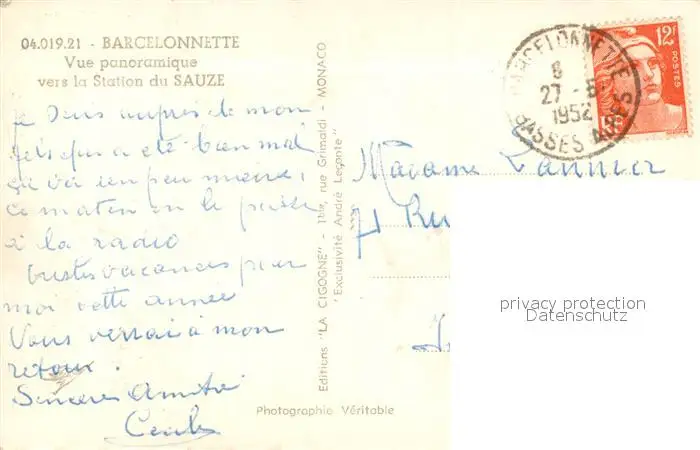 04.019.21 - BARCELONNETTE
Vue panoramique
vers la Station du SAUZE
je suis auprès de mon
fils qui a été bien mal
ça va un peu mieux,
ce matin on le passe
à la radio
tristes vacances pour
moi cette année
Vous verrai à mon
retour.
Sincères Amitiés
Editions "LA CIGOGNE" - 1bis, rue Grimaldi - MONACO
"Exclusivité André Leconte"
Photographie Véritable
BARCELONNETTE
27 - 8
1952
BASSES ALPES
12F
POSTES
Madame Lannier
71 Ru
privacy protection
Datenschutz